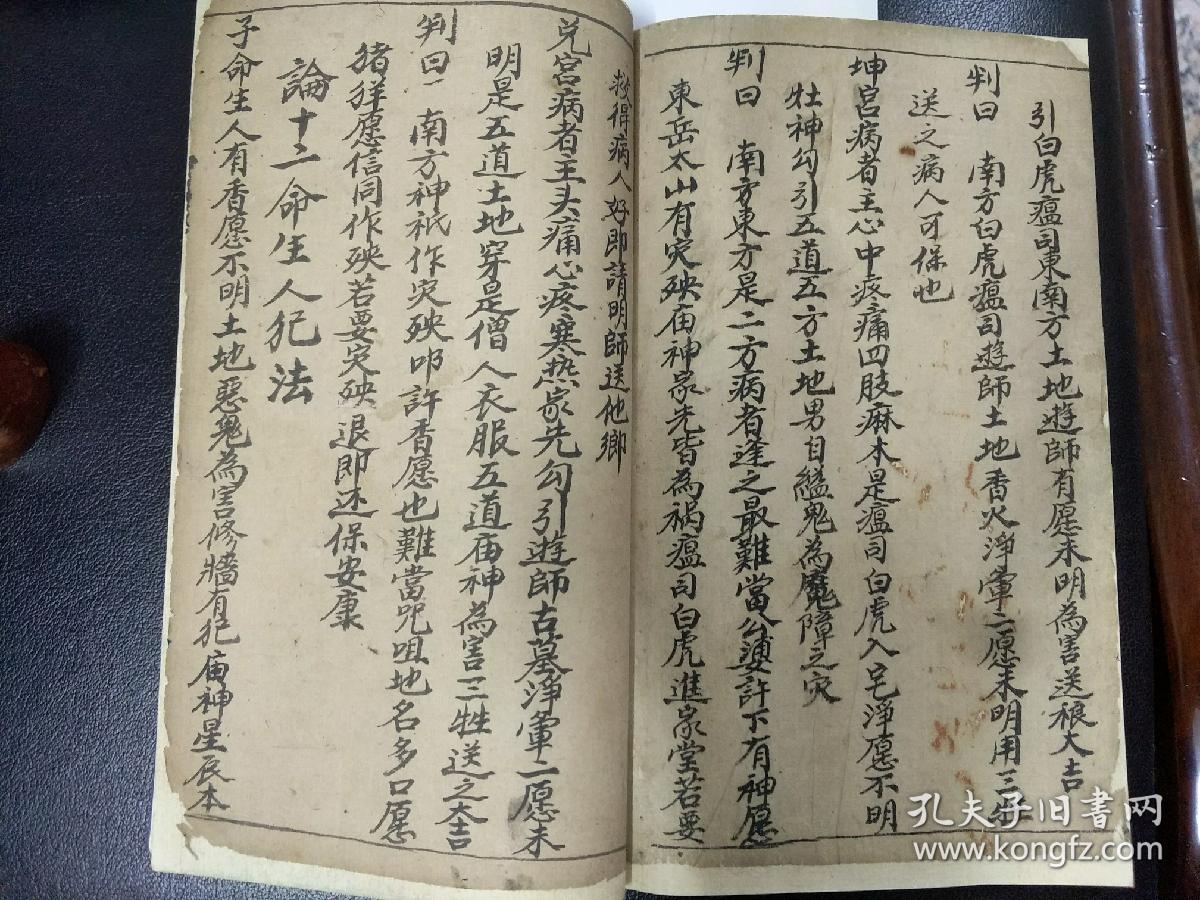 引白虎瘟司東南方土地遊師有愿未明為害送粮大吉
判曰 南方白虎瘟司遊師土地香火淨軍二愿未明用三牲
送之病人可保也
坤宮病者主心中疼痛四肢麻木是瘟司白虎入宅淨愿不明
牡神勾引五道五方土地男目縊鬼為魔障之灾
判曰 南方東方是二方病者逢之最難當公婆許下有神愿
東岳太山有灾殃庙神家先皆為祸瘟司白虎進家堂若要
得病人好即請明師送他鄉
兑宮病者主头痛心疼寒热家先勾引遊師古墓淨軍二愿未
明是五道土地穿是僧人衣服五道庙神為害三牲送之大吉
判曰 南方神祇作灾殃叩許香愿也難當咒咀地名多口愿
猪羊愿信同作殃若要灾殃退即还保安康
論十二命生人犯法
子命生人有香愿不明土地惡鬼為害修牆有犯庙神星辰本
孔夫子旧書网
www.kongfz.com